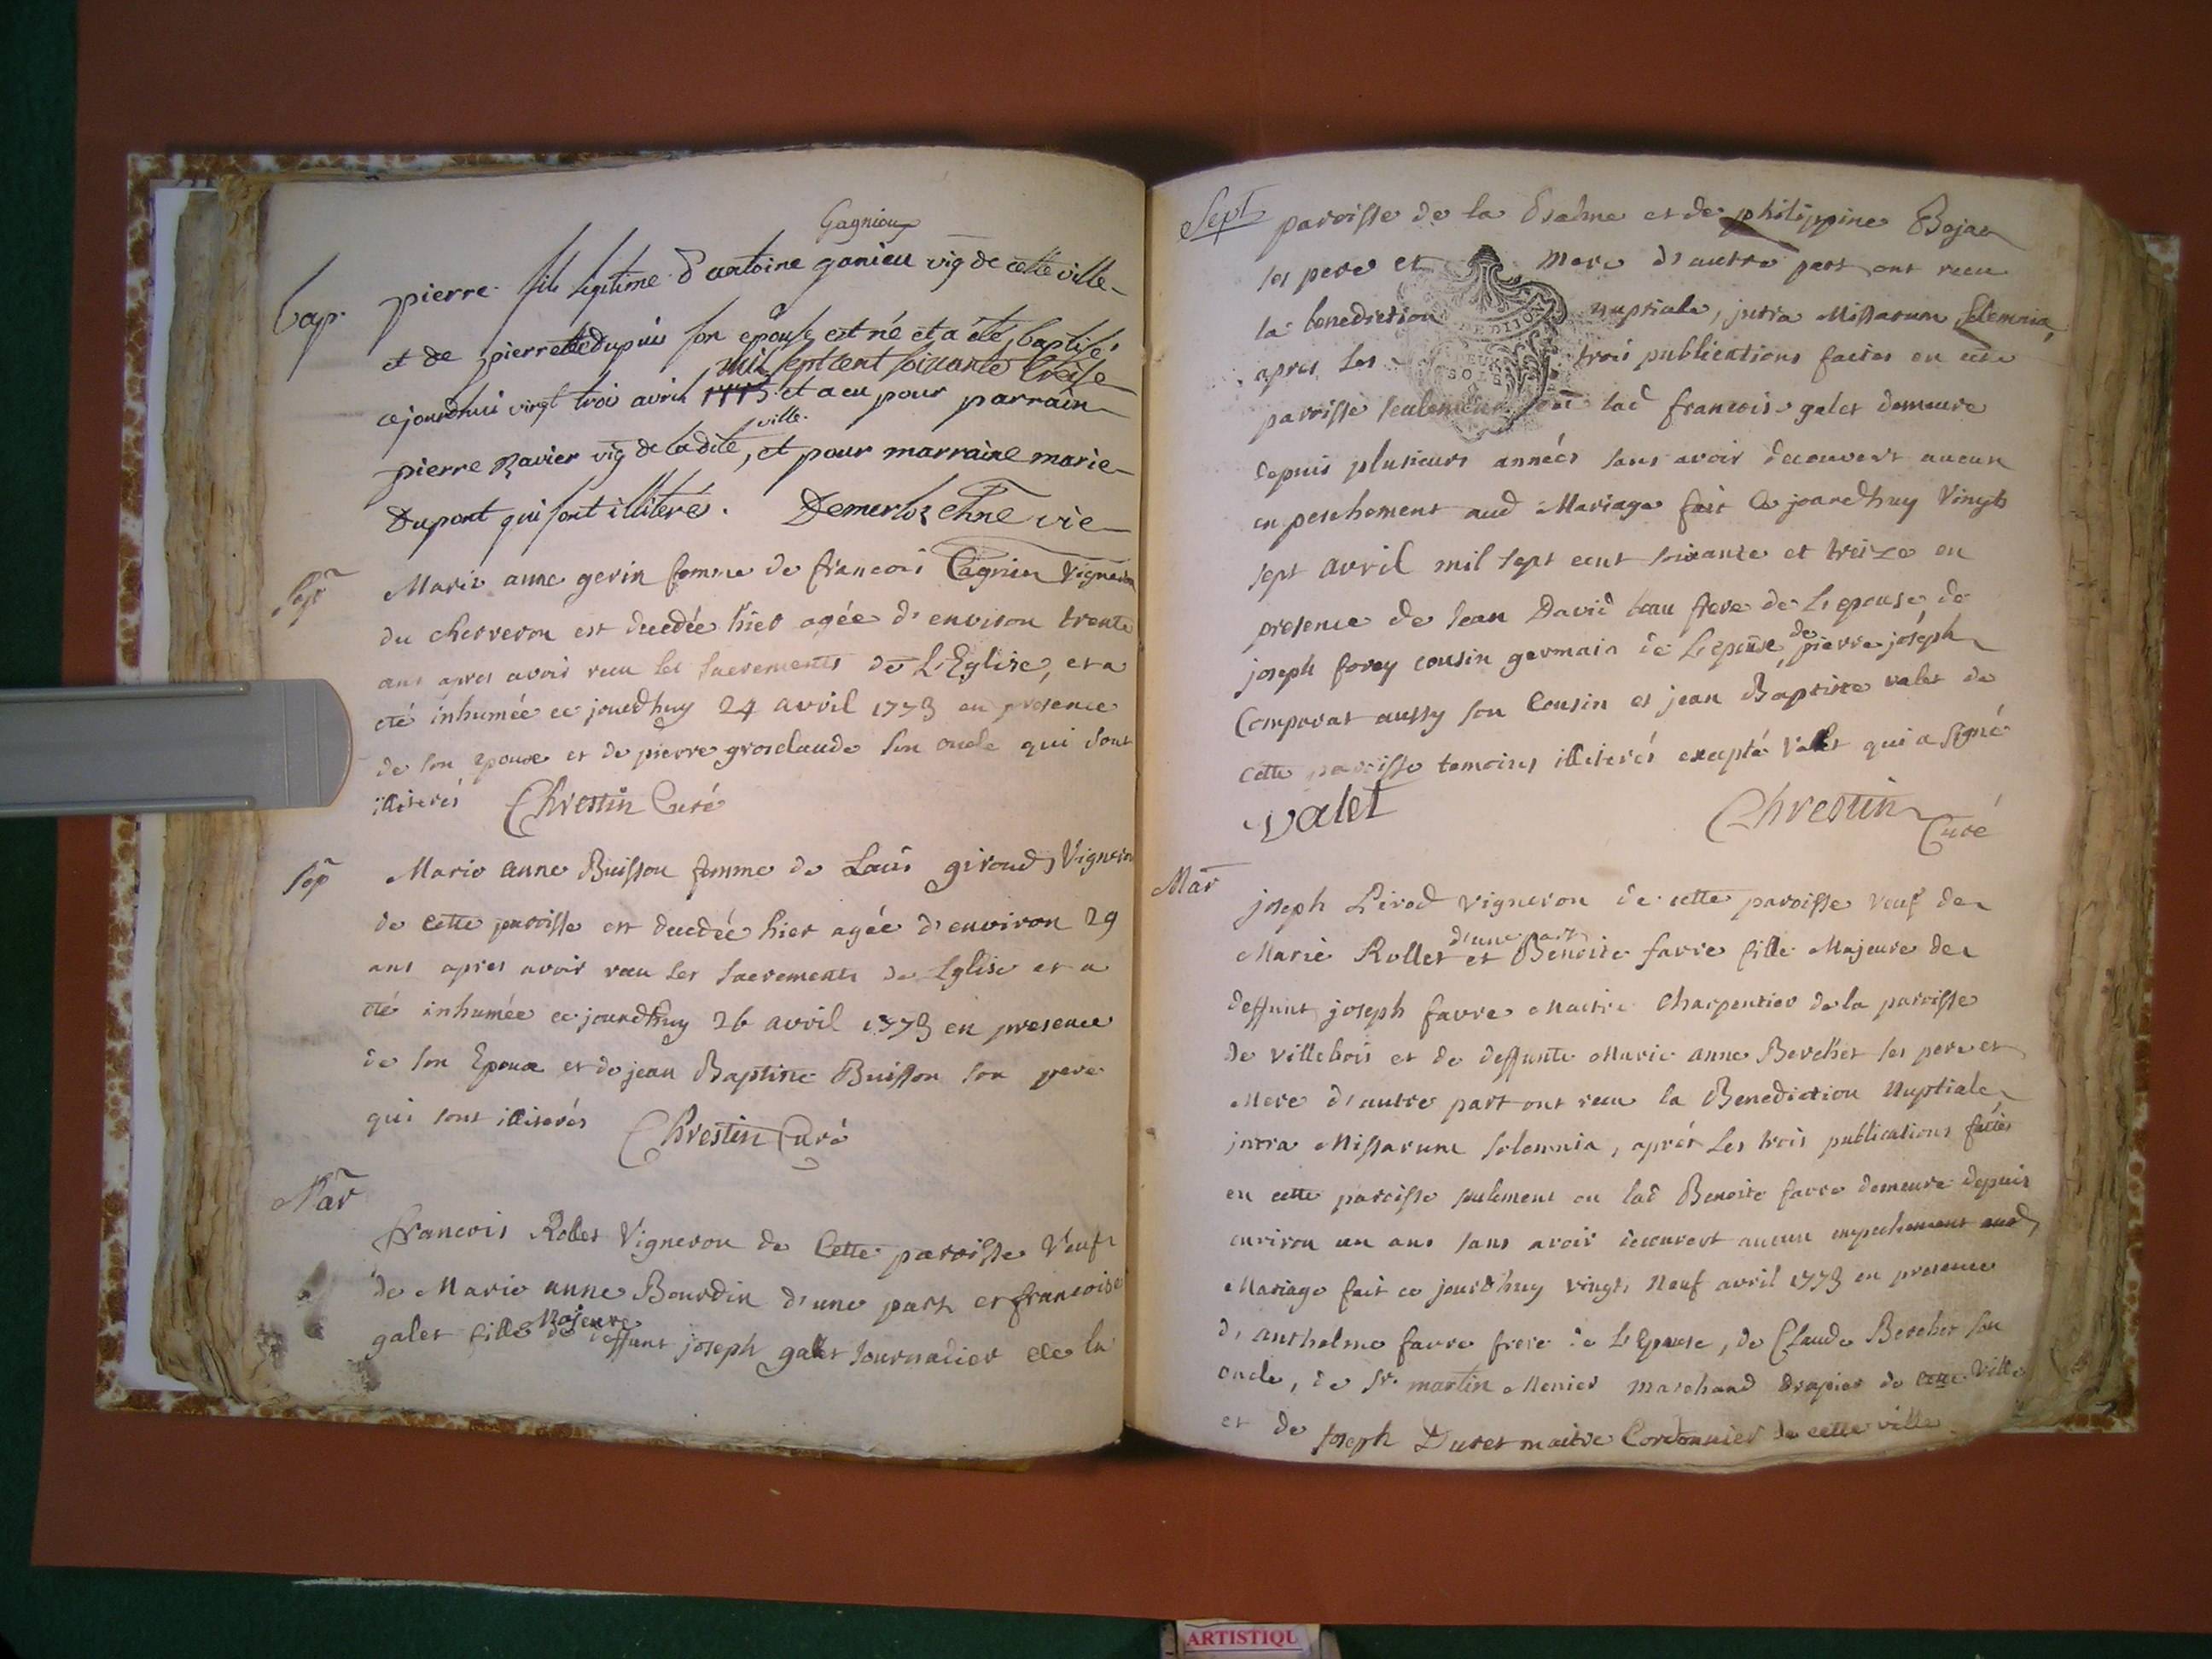 Gagnioux
Bap. pierre fils legitime d'antoine ganieu vig de cette ville
et de pierrette dupuis son epouse est né et a été baptisé
mil sept cent soixante treise
cejourdhui vingt trois avril 1773 et a eu pour parrain
ville
pierre Ravier vig de ladite, et pour marraine marie
Dupont qui sont illiteré. Demerloz vic
Sep Marie anne gerin femme de francois Cagnin Vigneron
du cherveron est decedée hier agée d'environ trente
ans apres avoir recu les sacrements de L'Eglise, et a
eté inhumée ce jourdhuy 24 avril 1773 en presence
de son epoux et de pierre grosclaude son oncle qui sont
illiterés Chrestin Curé
Sep Marie anne Buisson femme de Louis giroud Vigneron
de cette paroisse est decedée hier agée d'environ 29
ans apres avoir recu les sacrements de Eglise et a
eté inhumée ce jourdhuy 26 avril 1773 en presence
de son Epoux et de jean Baptiste Buisson son pere
qui sont illiterés Chrestin Curé
Mar
francois Rollet Vigneron de Cette paroisse Veuf
de Marie anne Bourdin d'une part et francoise
Majeure
galet fille de deffunt joseph galet Journalier de la
Sept paroisse de la Balme et de philippine Bojat
ses pere et Mere d'autre part ont recu
la benediction nuptiale, intra Missarum solemnia,
apres les trois publications faites en cette
paroisse seulement lad francois galet demeure
depuis plusieurs années sans avoir decouvert aucun
enpeschement aud Mariage fait Ce jourdhuy Vingt
sept avril mil sept cent soixante et treize en
presence de Jean David beau frere de L'epouse, de
de
joseph forey cousin germain de L'epouse, pierre joseph
Comparat aussy son Cousin et jean Baptiste valet de
cette paroisse temoins illiterés excepté Valet qui a signé
valet Chrestin
Curé
Mar
joseph Perod vigneron de cette paroisse veuf de
d'une part
Marie Rollet et Benoite favre fille Majeure de
deffunt joseph favre Maitre Charpentier de la paroisse
de villebois et de deffunte Marie anne Bercher ses pere et
Mere d'autre part ont recu la Benediction Nuptiale
intra Missarum solemnia, aprés Les trois publications faites
en cette paroisse sulement ou lad Benoite favre demeure depuis
environ un ans sans avoir decouvert aucun empechement aud
Mariage fait ce jourdhuy vingt Neuf avril 1773 en presence
d'anthelme favre frere de L'Epouse, de Claude Bercher son
oncle, de Sr. martin Menier marchand drapier de cette Ville
et de Joseph Duret maitre Cordonnier de cette ville
ARTISTIQU